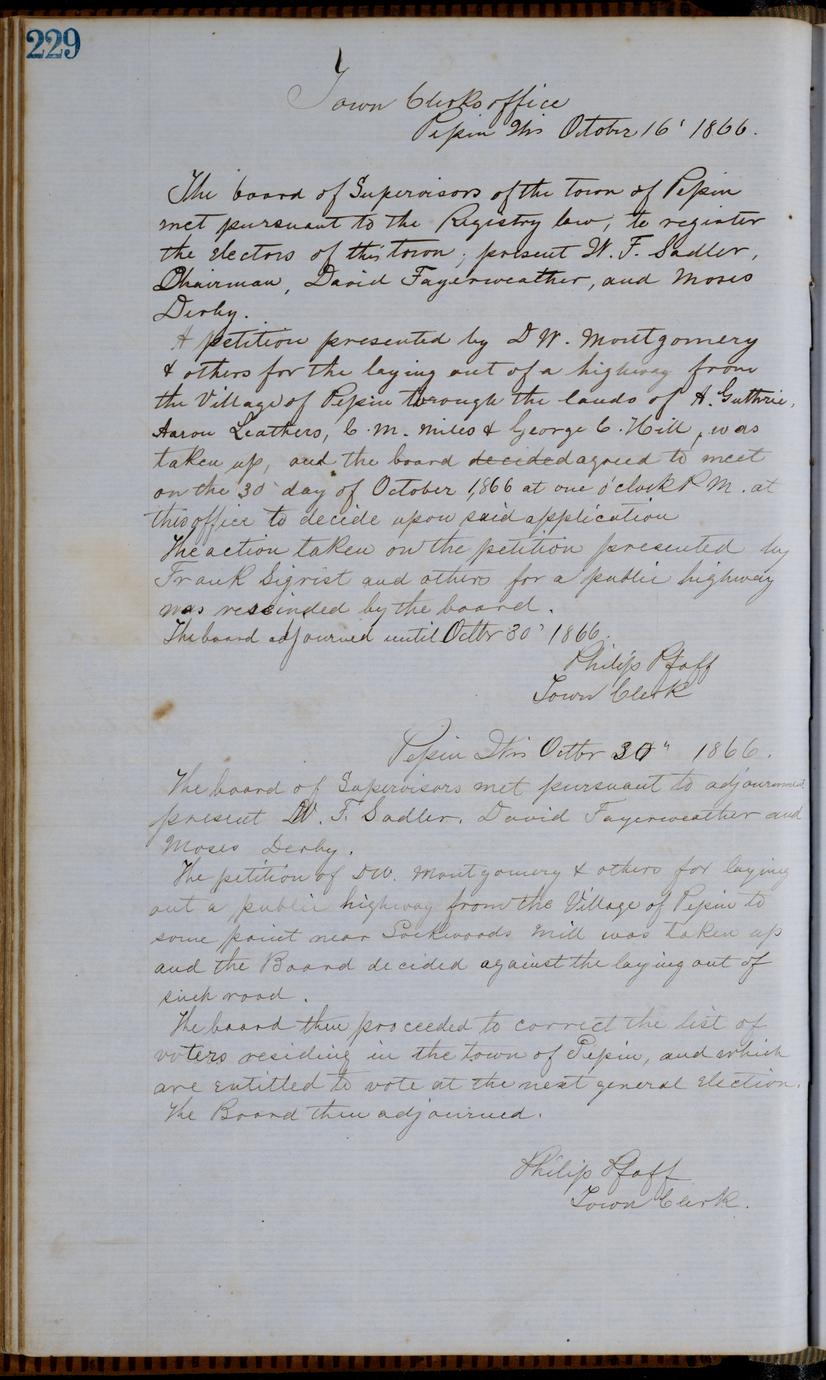 229
Town Clerks office
Pepin Wis October 16' 1866.
The board of Supervisors of the town of Pepin
met pursuant to the Registry law, to register
the electors of this town; present W. F. Sadler,
Chairman, David Fayerweather, and Moses
Derby.
A petition presented by D W. Montgomery
& others for the laying out of a highway from
the Village of Pepin through the lands of A. Guthrie,
Aaron Leathers, C. M. Miles & George C. Hill, was
taken up, and the board decided agreed to meet
on the 30' day of October 1866 at one o'clock P.M. at
this office to decide upon said application
The action taken on the petition presented by
Frank Sigrist and others for a public highway
was rescinded by the board.
The board adjourned until Octbr 30' 1866.
Philip Pfaff
Town Clerk
Pepin Wis Octbr 30" 1866.
The board of Supervisors met pursuant to adjournment
present W. F. Sadler, David Fayerweather and
Moses Derby.
The petition of DW. Montgomery & others for laying
out a public highway from the Village of Pepin to
some point near Lockwoods Mill was taken up
and the Board decided against the laying out of
such road.
The board then proceeded to correct the list of
voters residing in the town of Pepin, and which
are entitled to vote at the next general election.
The Board then adjourned.
Philip Pfaff
Town Clerk.